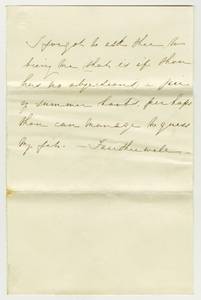 I forgot to ask thee to
bring me that is if thou
has no objections, a pair
of summer boots perhaps
thou can manage to guess
my fit. — Farethewell